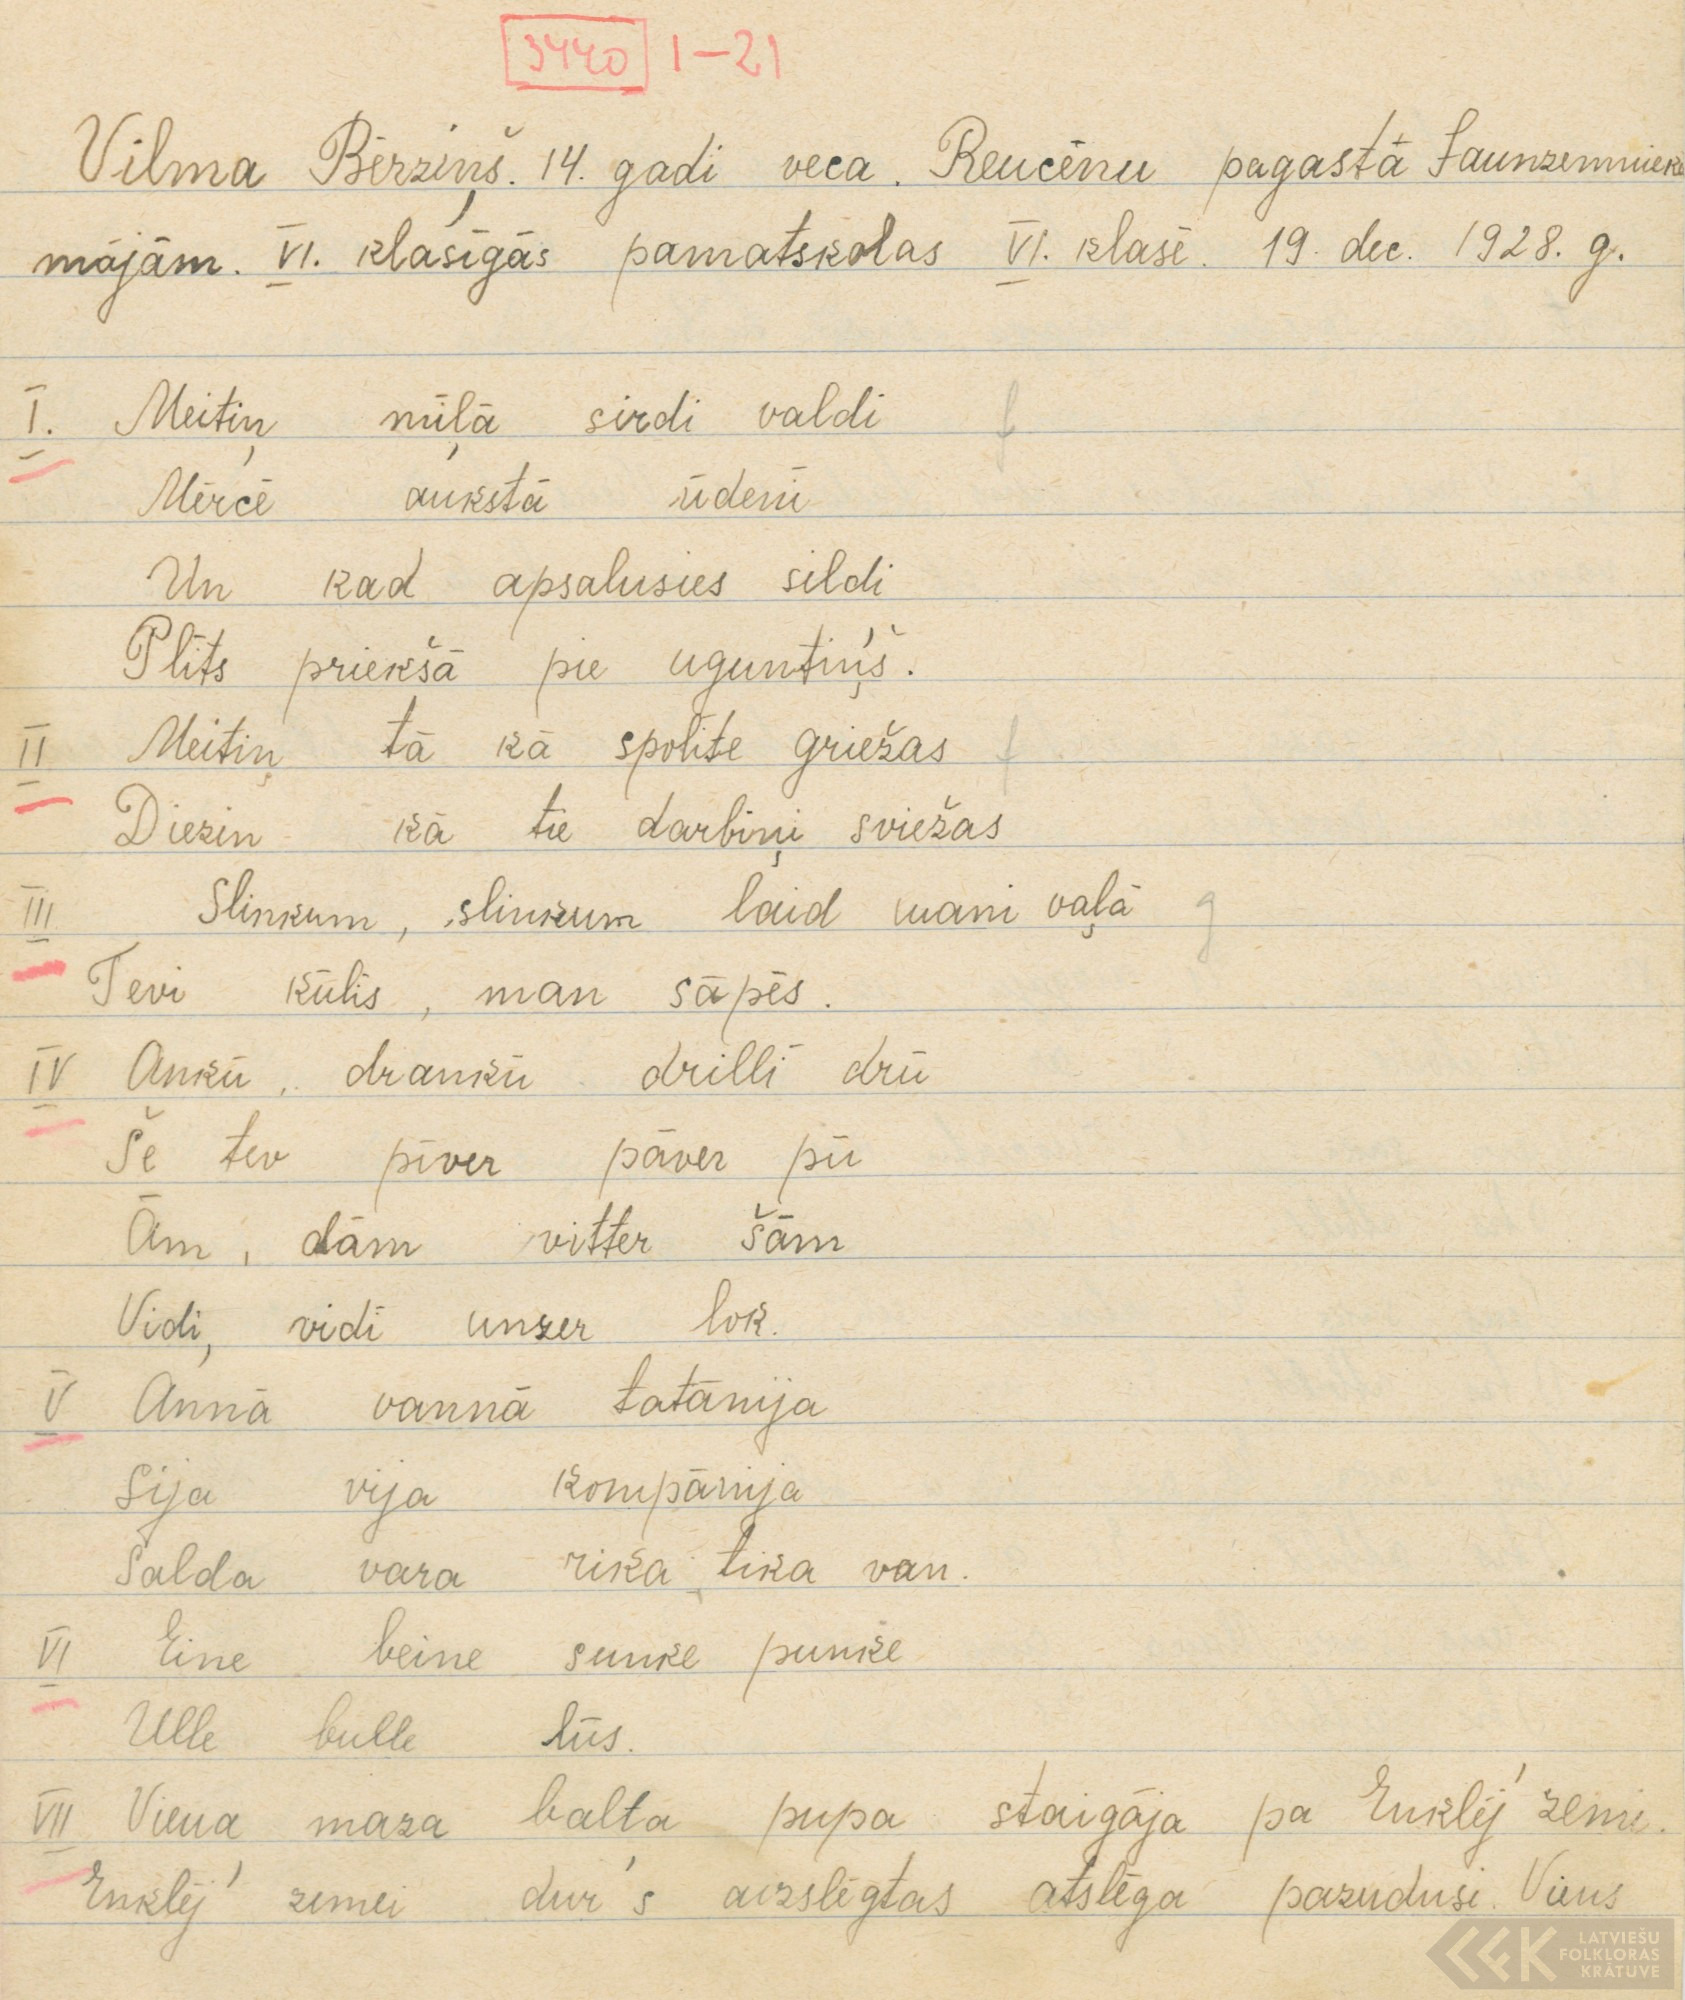 3440 1-21
Vilma Bērziņš. 14. gadi veca. Reucēnu pagastā Jaunzemnieku
mājām. VI. klasīgās pamatskolas VI. klasē. 19. dec. 1928. g.
I. Meitiņ mīļā sirdi valdi f
Mērcē aukstā ūdenī
Un kad apsalusies sildi
Plīts priekšā pie uguntiņ's.
II Meitiņ tā kā spolīte griežas f
Diezin kā tie darbiņi sviežas
III Slinkum, slinkum laid mani vaļā g
Tevi kūlis, man sāpēs.
IV Ankū, drankū drillī drū
Še tev pīver pāver pū
Ām, dām vitter šām
Vidi, vidī unzer lok.
V Annā vannā tatānija
Sija vija kompānija
Salda vara rika tika van.
VI Eine beine sunke punke
Ulle bulle lūs.
VII Viena maza balta pupa staigāja pa Enklēj' zemi.
Enklēj' zemei dur's aizslēgtas atslēga pazudusi. Viens
LATVIEŠU
FOLKLORAS
KRĀTUVE